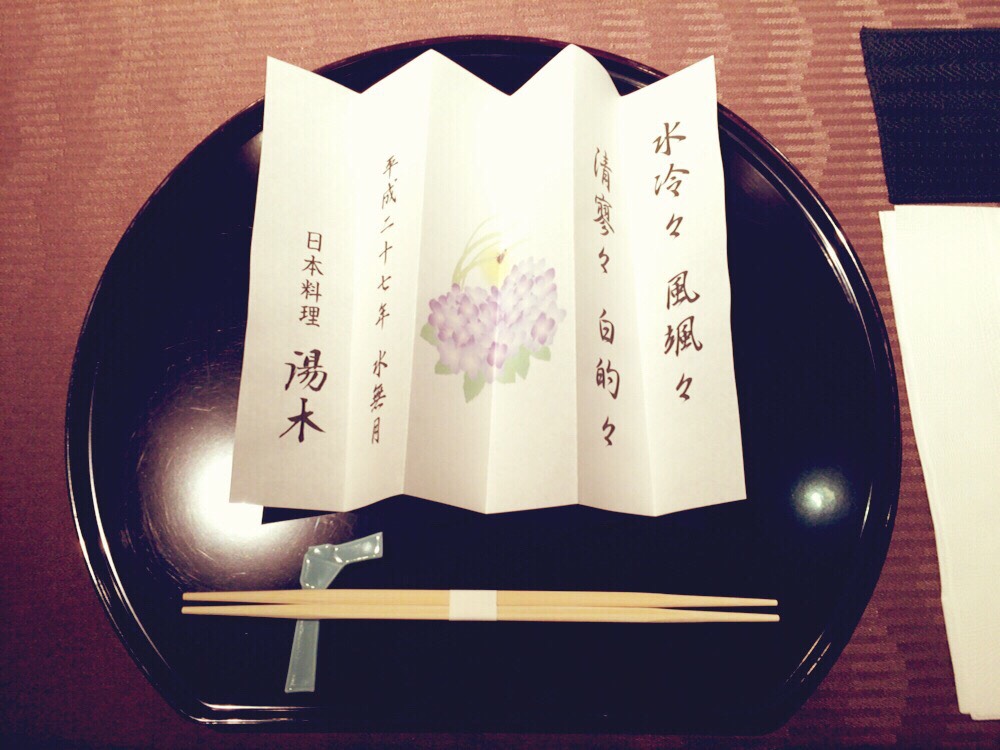 水冷々 風颯々
清寥々 白的々
平成二十七年 水無月
日本料理 湯木